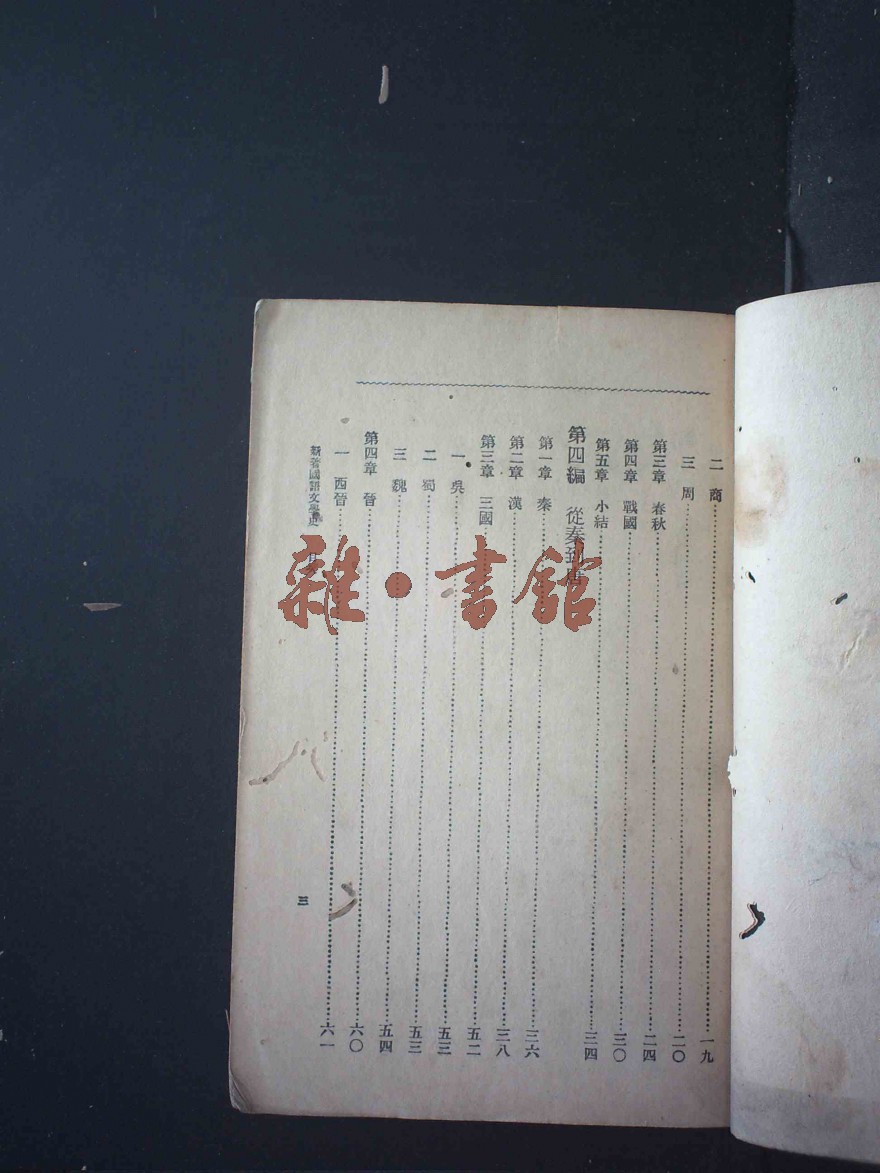 二 商……一九
三 周……二〇
第三章 春秋……二四
第四章 戰國……三〇
第五章 小結……三四
第四編 從秦到唐
第一章 秦……三六
第二章 漢……三八
第三章 三國……五二
一 吳……五三
二 蜀……五三
三 魏……五四
第四章 晉……六〇
一 西晉……六一
新著國語文學史 目次
三
雜·書館